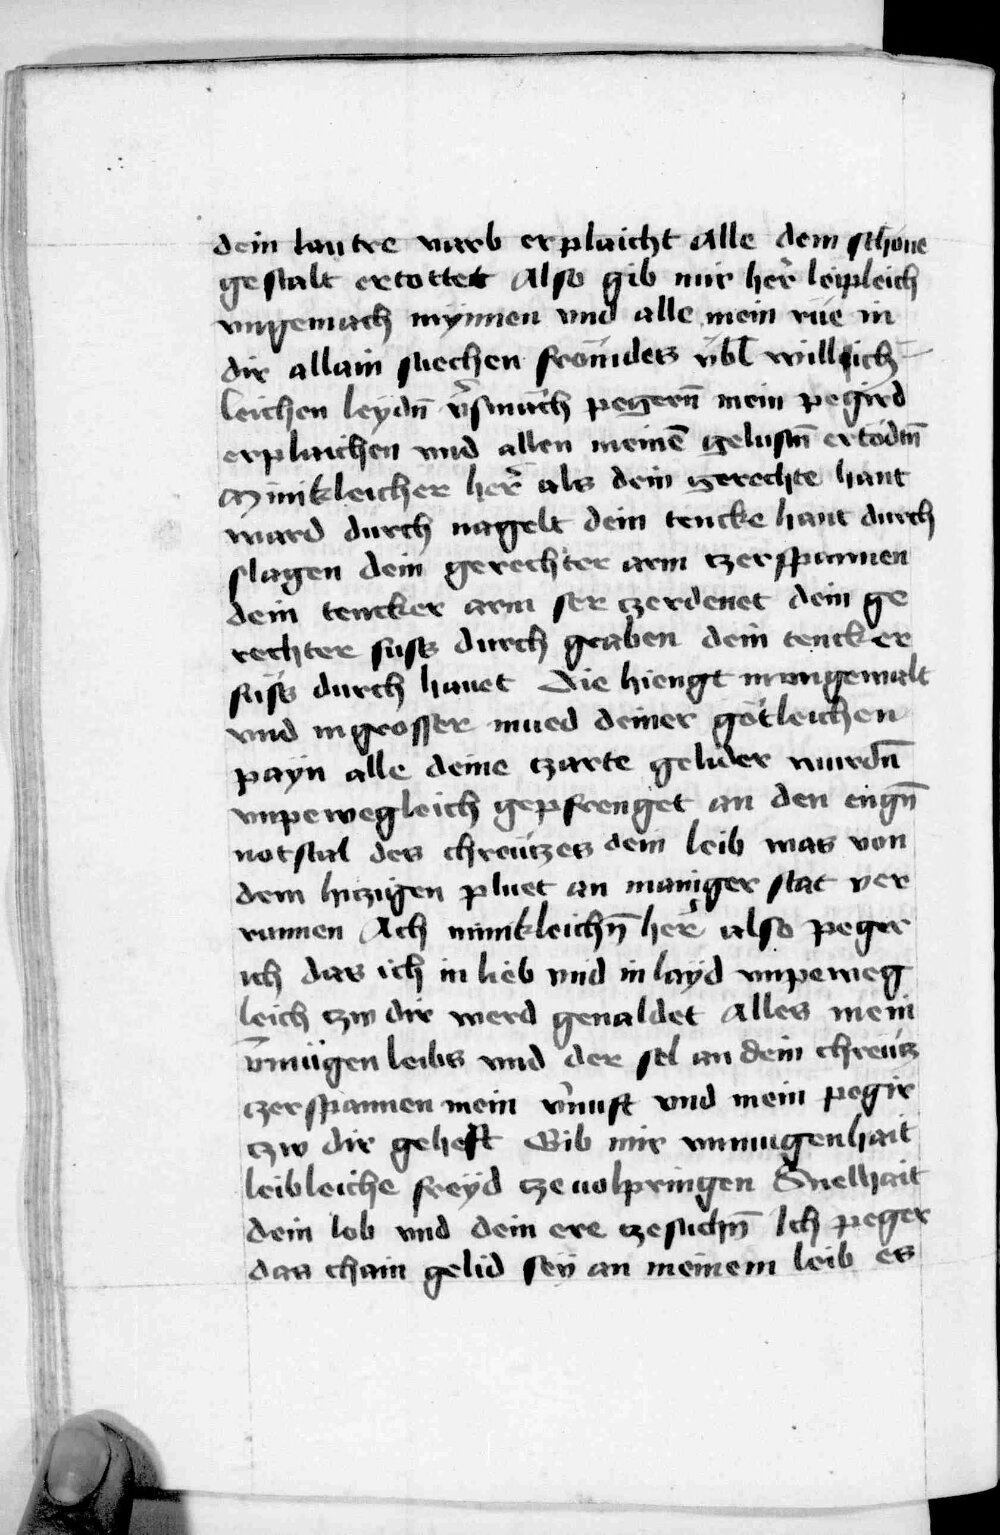 dein lautre varb erplaicht Alle dein schöne
gestalt ertottet Also gib mir her̄ leipleich
vngemach mynnen vnd alle mein rüe in
dir allain suechen frömdes vbl willich
leichen leydn̄ v̄smäch pegern̄ mein pegird
erplaichen vnd allen meinē gelustn̄ ertödtn̄
Minikleicher her̄ als dein gerechte hant
ward durch nagelt dein tencke hant durch
slagen dein gerechter arm tzerspannen
dein tencker arm ser tzerdenet dein ge
rechter fuss durch graben dein tencker
füss durch hauet Die hiengt in vngewalt
vnd in grosser mued deiner götleichen
payn alle deine tzarte gelider wurdn̄
vnpewegleich gepfrenget an den engn̄
notstal des chreutzes dein leib was von
dem hitzigen pluet an maniger stat ver
runnen Ach minikleichn̄ her̄ also peger
ich das ich in lieb vnd in layd vnpeweg
leich tzw dir werd genaldet Alles mein
v̄mügen leibs vnd der sel an dein chreütz
tzerspannen mein v̄nuft vnd mein pegir
tzw dir geheft Gib mir vnmugenhait
leibleiche freyd tze uolpringen Snelhait
dein lob vnd dein ere tzesuchn̄ Ich peger
das chain gelid sey an meinem leib es